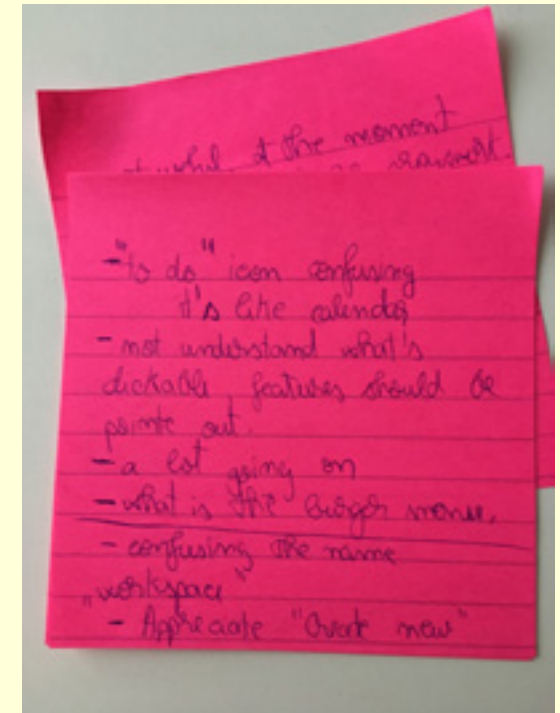 the moment
- "to do" icon confusing
it's like calendar
- not understand what's
clickable features should be
pointe out.
- a lot going on
- what is the burger menu,
- confusing the name
„workspace"
- Appreciate "Create new"